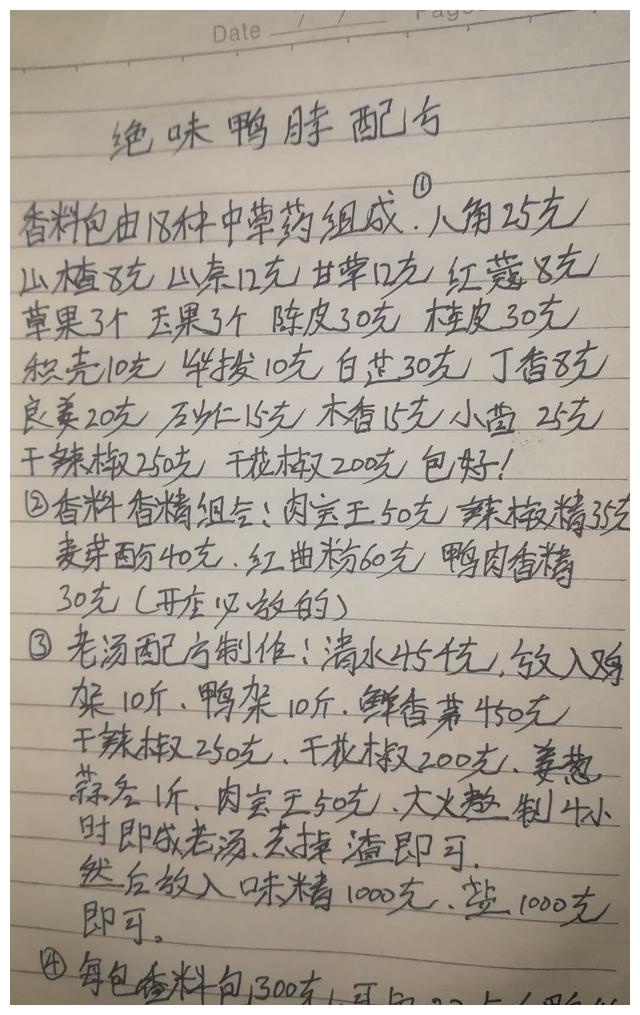 Date / / Page
绝味鸭脖配方
香料包由18种中草药组成.①八角25克
山楂8克 山奈12克 甘草12克 红蔻8克
草果3个 玉果3个 陈皮30克 桂皮30克
枳壳10克 毕拔10克 白芷30克 丁香8克
良姜20克 砂仁15克 木香15克 小茴 25克
干辣椒250克 干花椒200克 包好!
②香料香精组合:肉宝王50克 辣椒精35克
麦芽酚40克.红曲粉60克 鸭肉香精
30克(开店必放的)
③ 老汤配方制作:清水45千克,放入鸡
架10斤、鸭架10斤.鲜香茅450克
干辣椒250克.干花椒200克.姜葱
蒜各1斤.肉宝王50克.大火熬制4小
时即成老汤.去掉渣即可.
然后放入味精1000克、盐1000克
即可。
④每包香料包1300克,可